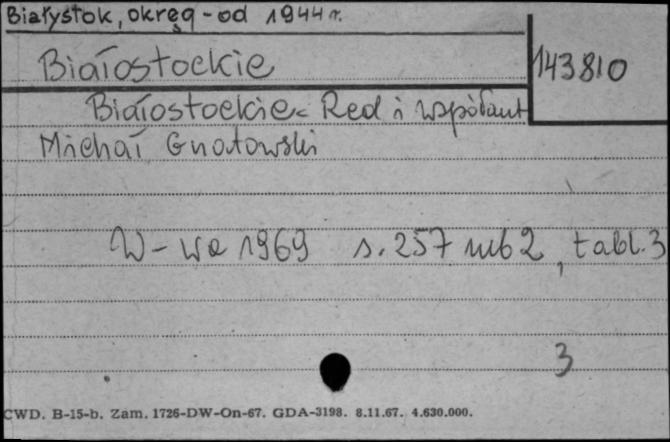 Białystok, okręg - od 1944 r.
Białostockie
143810
Białostockie. Red i współaut
Michał Gnatowski
W-wa 1969 s. 257 nlb 2, tabl. 3
3
CWD. B-15-b. Zam. 1726-DW-On-67. GDA-3198. 8.11.67. 4.630.000.